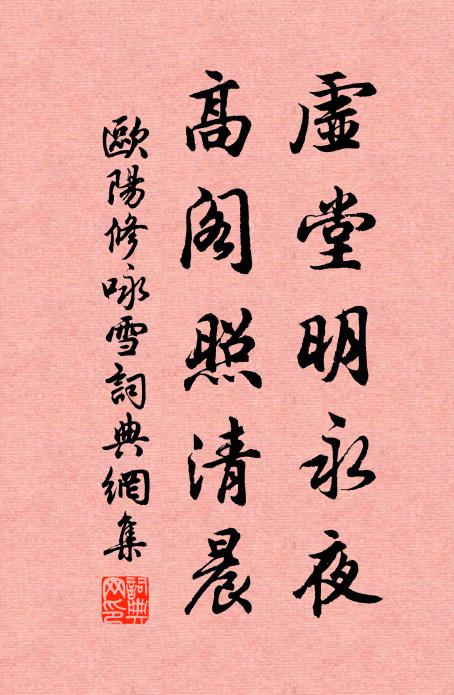 虛堂明永夜
高阁照清晨
歐陽修咏雪詞典網集
詞典網印